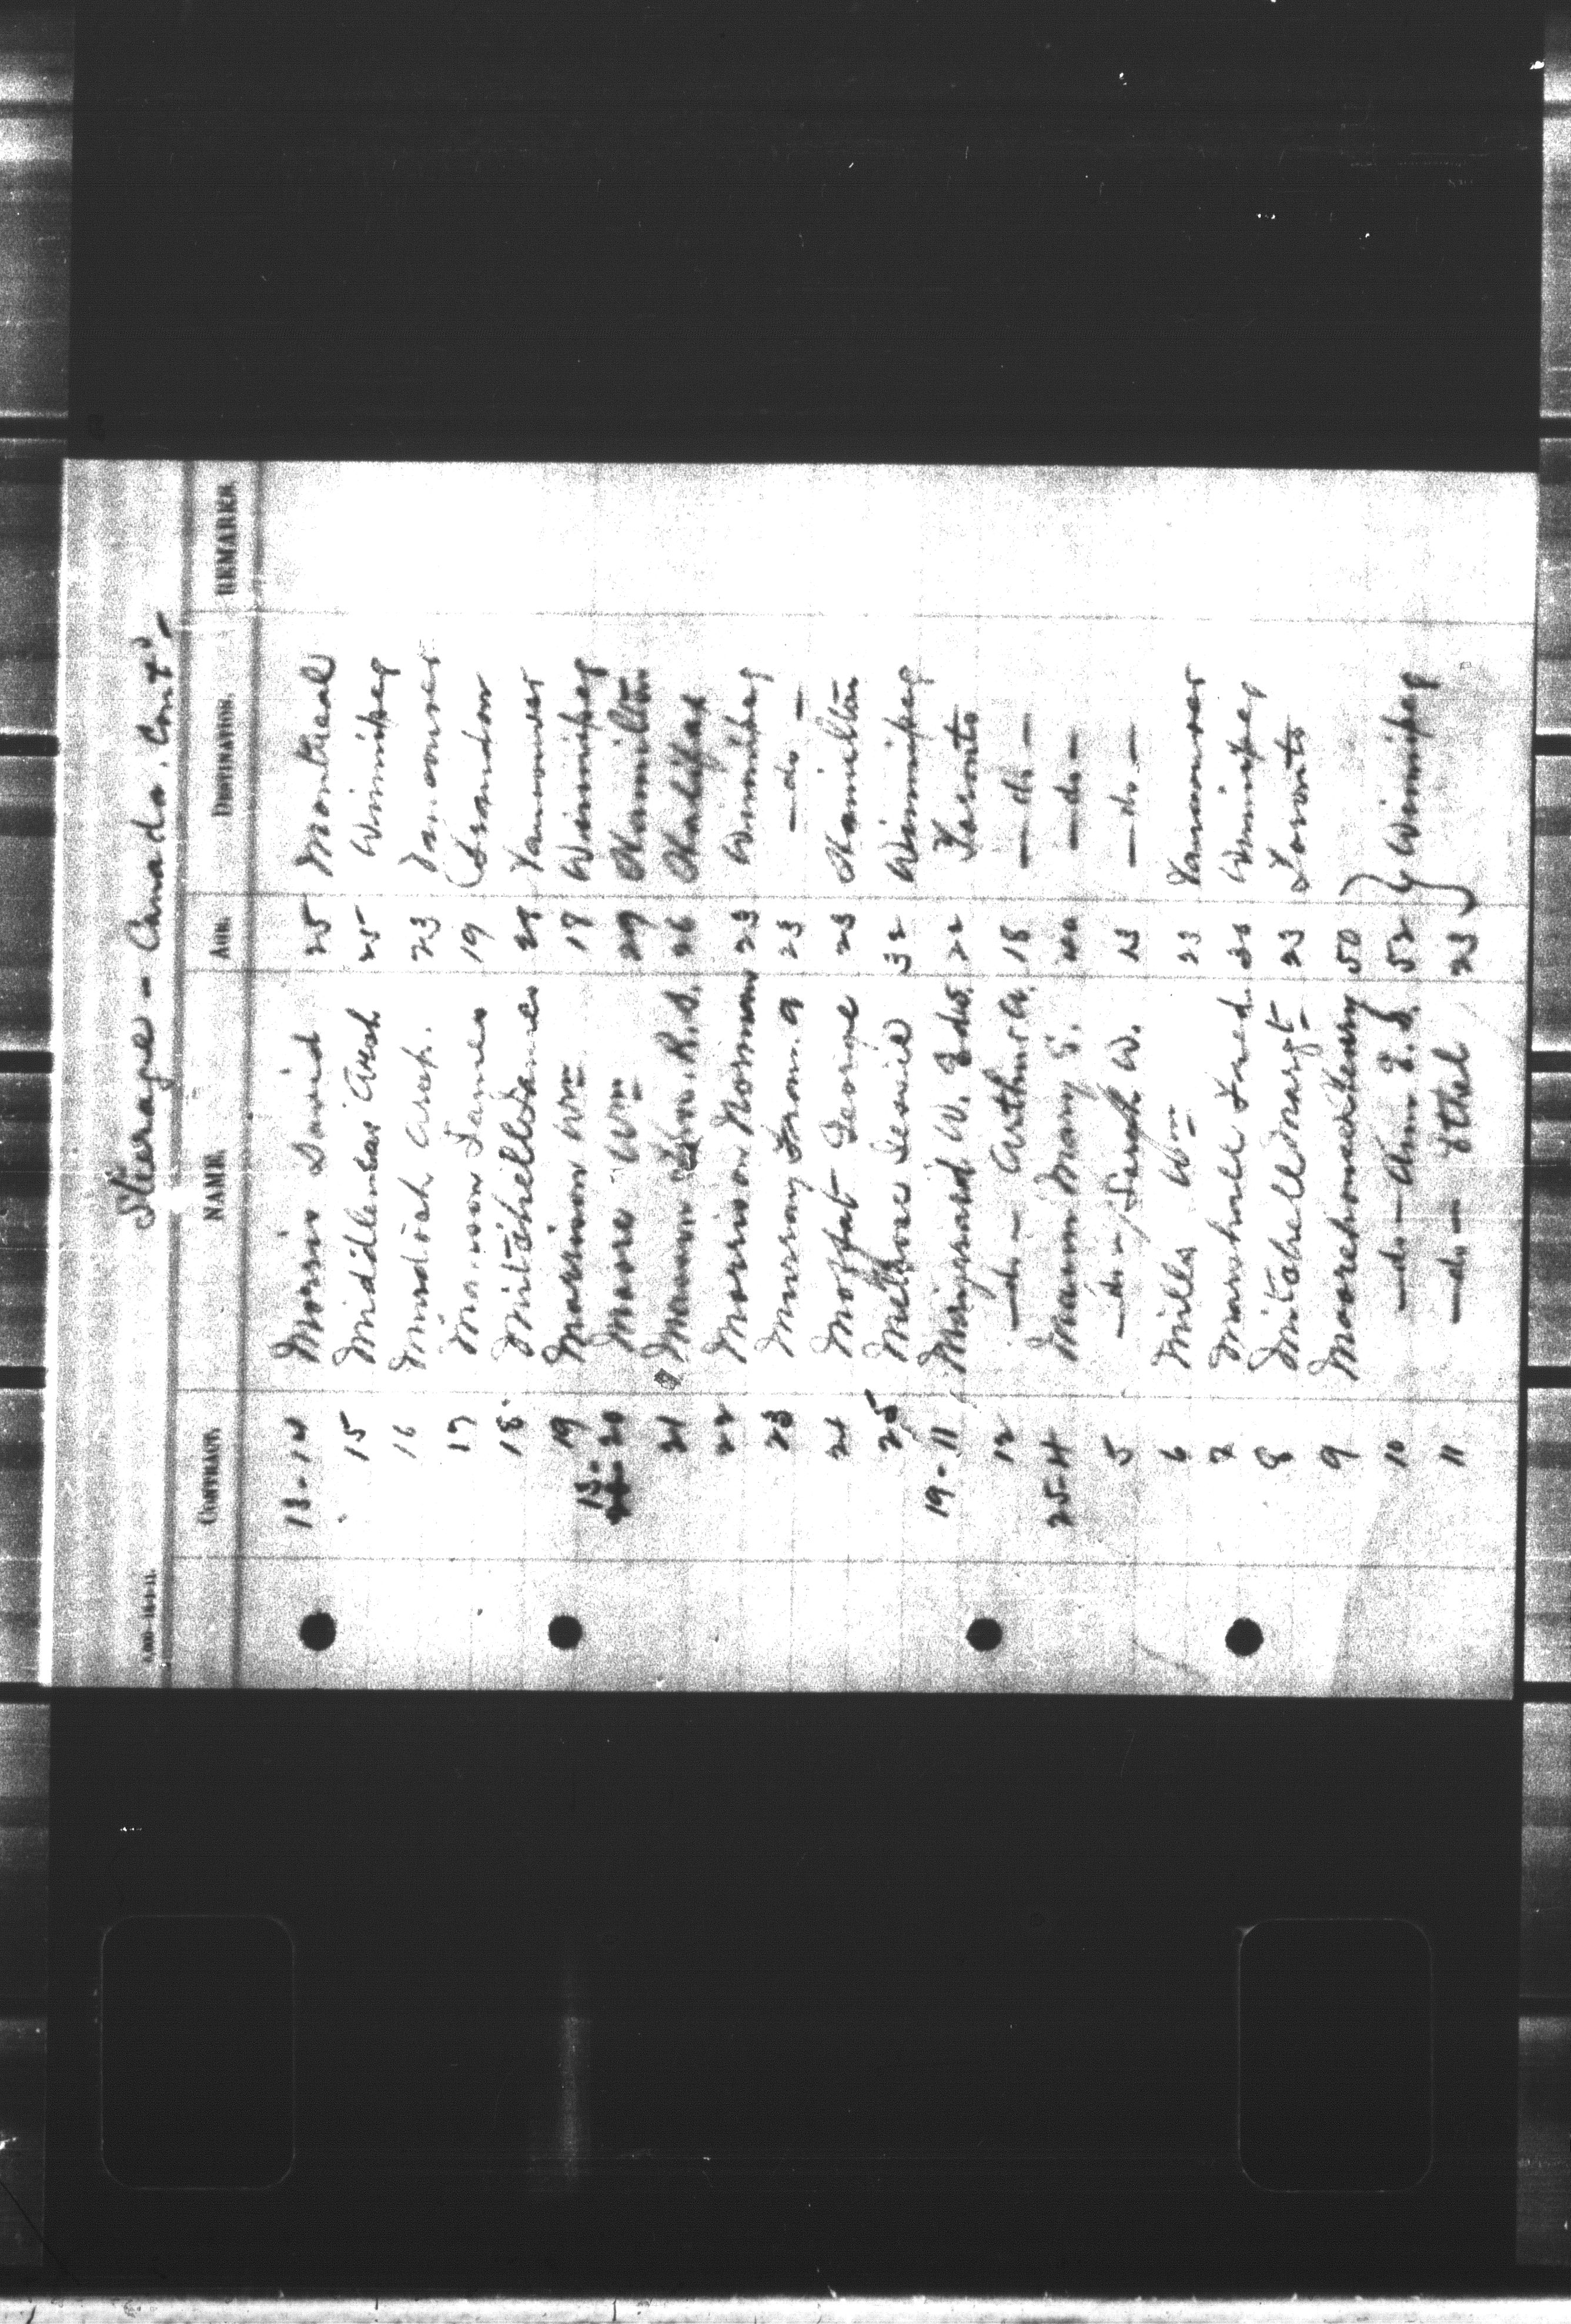 Steerage - Canada. Cont'd
4,000-16-1-11.
CONTRACT. NAME. AGE. DESTINATION. REMARKS.
13-14 Morris David 25 Montreal
15 Middlemas Arch 25 Winnipeg
16 Murdoch Arch. 23 Vancouver
17 James 19 Brandon
18 Mitchell James Vancouver
19 Morrison Wm 18 Winnipeg
13-20 Moore Wm 29 Hamilton
21 R.S. 26 Halifax
22 Morrison Norman 23 Winnipeg
23 Murray 23 -do-
24 Moffat George 23 Hamilton
25 Melrose 32 Winnipeg
19-11 Maynard W. Edw. 22 Toronto
12 -do- Arthur W. 18 -do-
25-4 Mann Mary E. -do-
5 -do- Sarah W. 13 -do-
6 Mills Wm 23 Vancouver
7 Marshall Fred. Winnipeg
8 Mitchell Margt 23 Toronto
9 Henry 50
10 -do- Ann E.S. 52 } Winnipeg
11 -do- Ethel 23